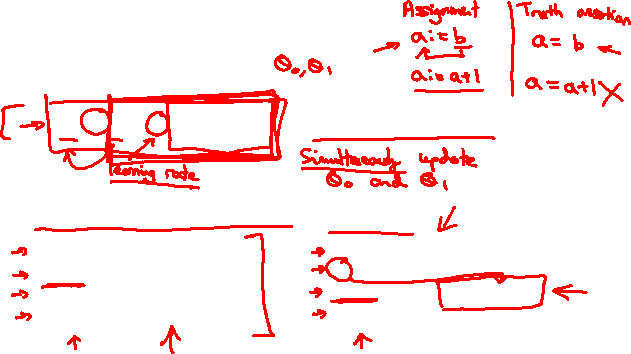 Assignment
Truth assertion
a:=b
a=b
a:=a+1
a=a+1
θ₀,θ₁
learning rate
Simultaneously update
θ₀ and θ₁